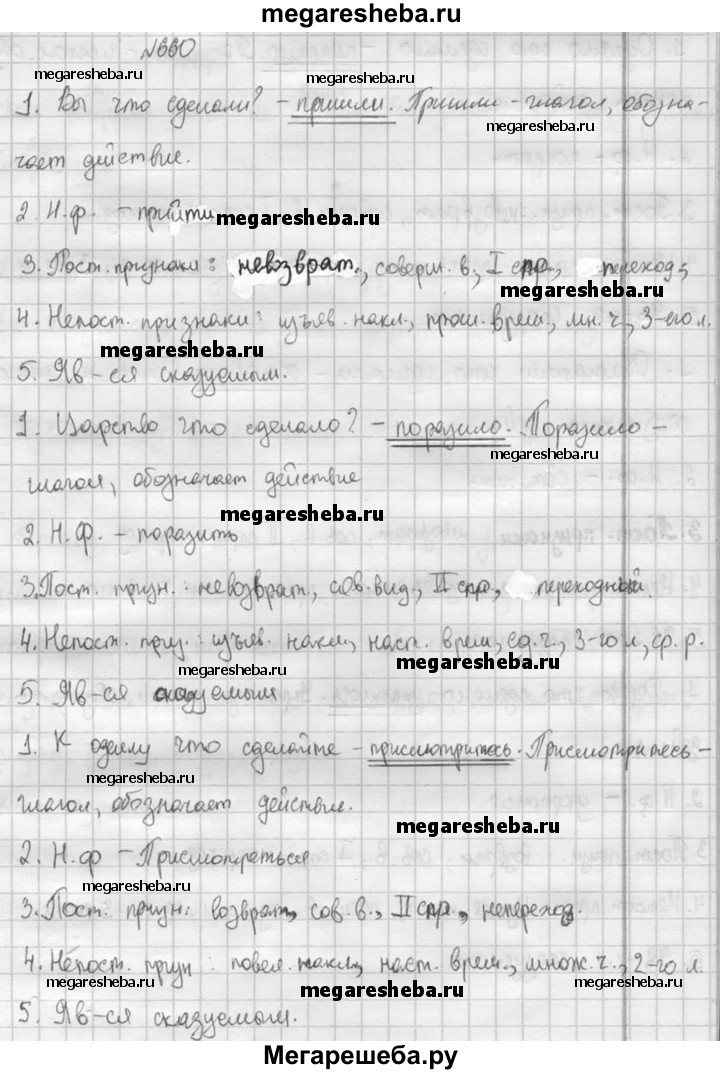 megaresheba.ru
№660
megaresheba.ru
megaresheba.ru
1. Вы что сделали? – пришли. Пришли – глагол, обозна-
megaresheba.ru
чает действие.
2. Н.ф. – прийти
megaresheba.ru
3. Пост. признаки: невозврат., соверш. в., I спр., переход.,
megaresheba.ru
4. Непост. признаки: изъяв. накл., прош. врем., мн. ч., 3-его л.
megaresheba.ru
5. Яв-ся сказуемым.
1. Царство что сделало? – поразило. Поразило –
megaresheba.ru
глагол, обозначает действие
megaresheba.ru
2. Н.ф. – поразить
3. Пост. призн.: невозврат., сов. вид., II спр., переходный.
4. Непост. приз.: изъяв. накл., наст. врем., ед. ч., 3-го л., ср. р.
megaresheba.ru
megaresheba.ru
5. Яв-ся сказуемым
1. К одему что сделайте – присмотритесь. Присмотритесь –
megaresheba.ru
глагол, обозначает действие.
megaresheba.ru
2. Н.ф – Присмотреться
megaresheba.ru
3. Пост. призн: возврат., сов. в., II спр., непереход.
4. Непост. призн: повел. накл., наст. врем., множ. ч., 2-го л.
megaresheba.ru
megaresheba.ru
5. Яв-ся сказуемым.
Мегарешеба.ру